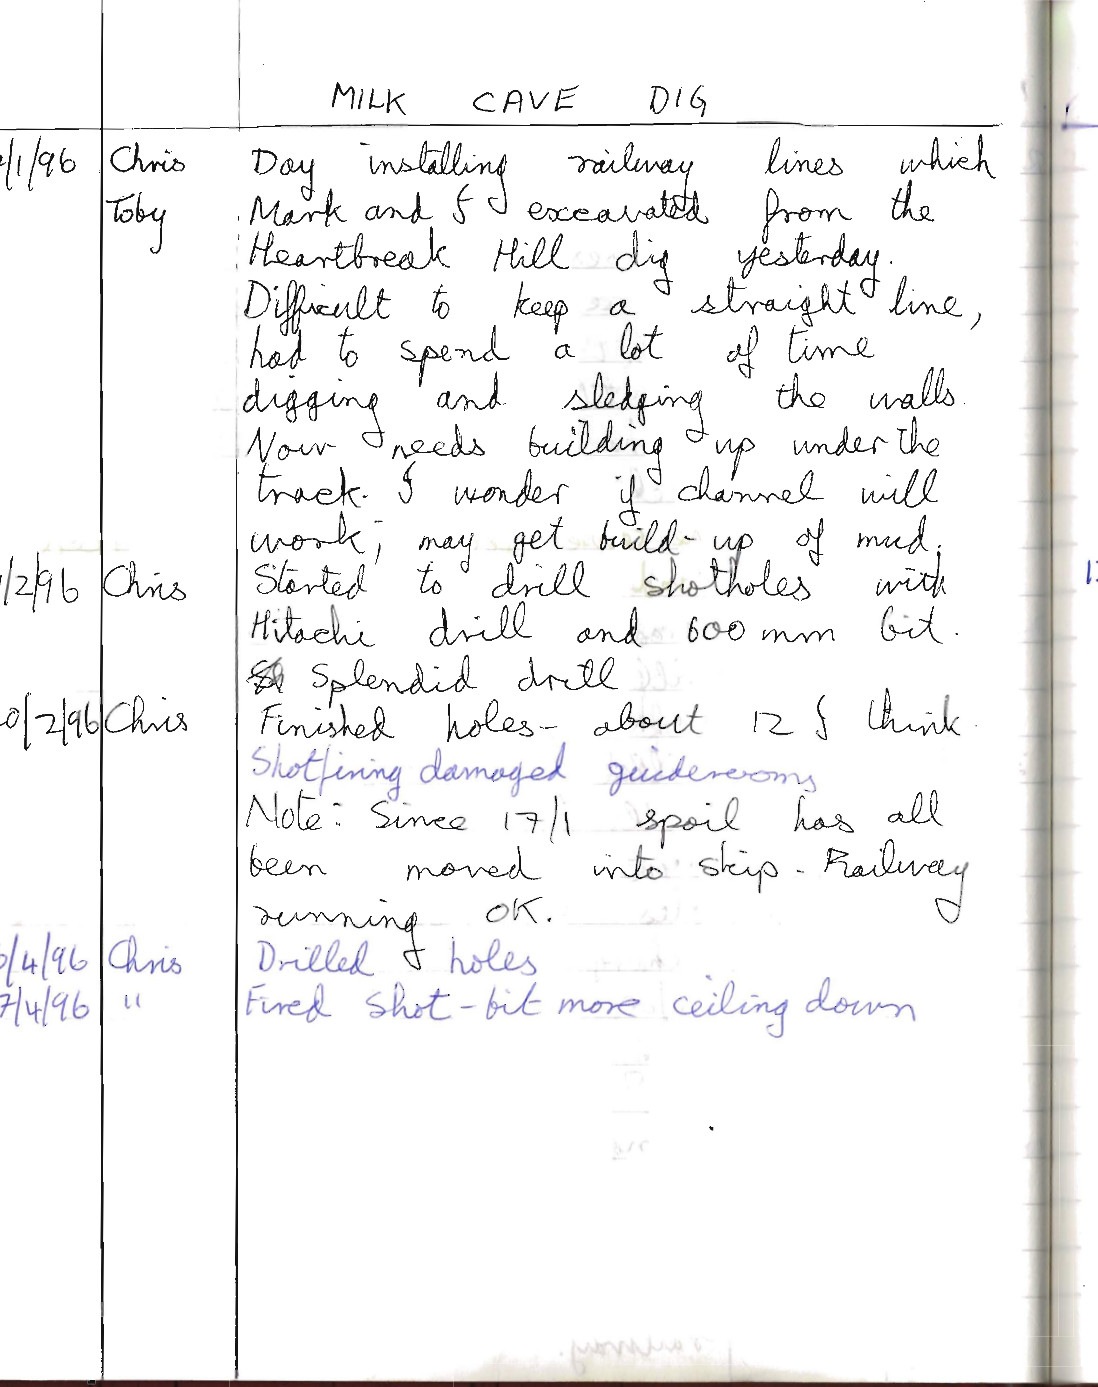 MILK CAVE DIG
/1/96 Chris Day installing railway lines which
Toby Mark and I excavated from the
Heartbreak Hill dig yesterday.
Difficult to keep a straight line,
had to spend a lot of time
digging and sledging the walls.
Now needs building up under the
track. I wonder if channel will
work; may get build-up of mud.
/2/96 Chris Started to drill shotholes with
Hitachi drill and 600mm bit.
Splendid drill
0/2/96 Chris Finished holes - about 12 I think.
Shotfiring damaged
Note: Since 17/1 spoil has all
been moved into skip. Railway
running OK.
/4/96 Chris Drilled holes
7/4/96 " Fired shot - bit more ceiling down